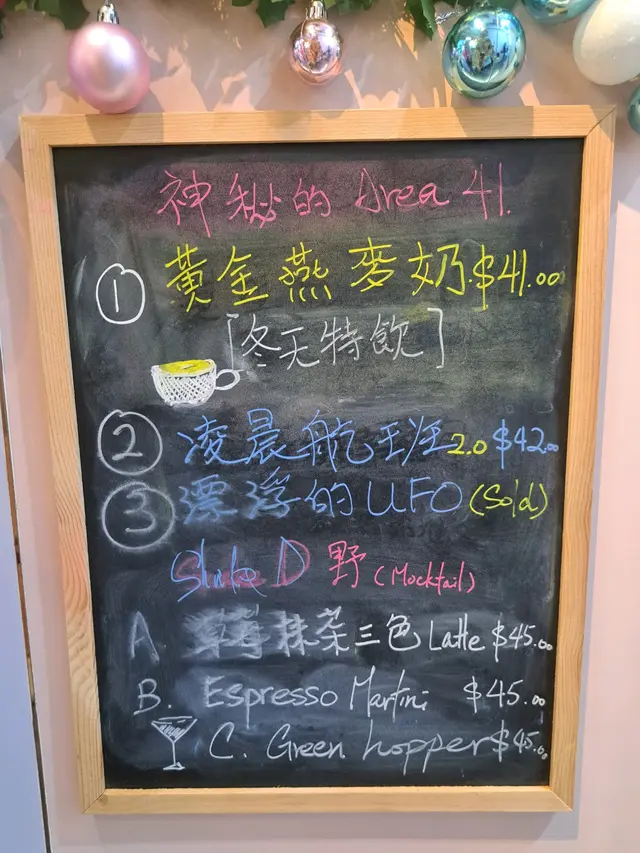 神秘的 Area 41.
① 黃金燕麥奶 $41.00
[冬天特飲]
② 凌晨航班 2.0 $42.00
③ 漂浮的 UFO (Sold)
Shake D 野 (Mocktail)
A. 草莓抹茶三色 Latte $45.00
B. Espresso Martini $45.00
C. Green hopper $45.00